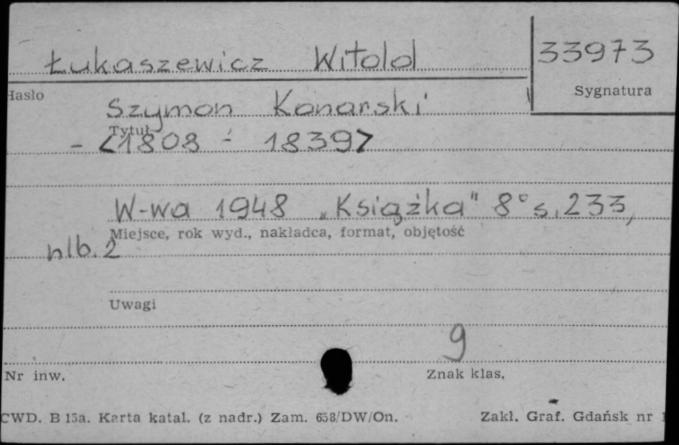 Łukaszewicz Witold
33973
Hasło
Sygnatura
Szymon Konarski
Tytuł
- <1808 - 1839>
W-wa 1948 „Książka" 8° s. 233,
Miejsce, rok wyd., nakładca, format, objętość
nlb. 2
Uwagi
9
Nr inw.
Znak klas.
CWD. B 15a. Karta katal. (z nadr.) Zam. 658/DW/On.
Zakł. Graf. Gdańsk nr